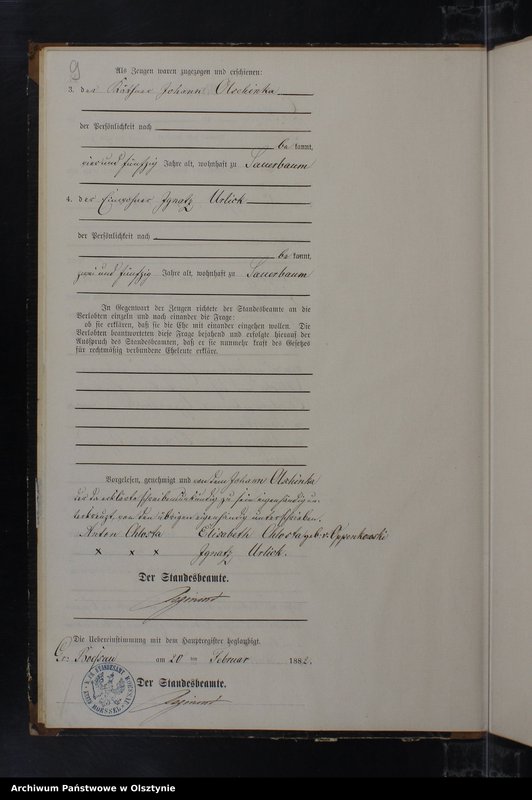 9
Als Zeugen waren zugezogen und erschienen:
3. der Käthner Johann Olschinka
der Persönlichkeit nach
be kannt,
vier und fünfzig Jahre alt, wohnhaft zu Sauerbaum
4. der Einwohner Ignatz Urlich
der Persönlichkeit nach
be kannt,
zwei und fünfzig Jahre alt, wohnhaft zu Sauerbaum
In Gegenwart der Zeugen richtete der Standesbeamte an die
Verlobten einzeln und nach einander die Frage:
ob sie erklären, daß sie die Ehe mit einander eingehen wollen. Die
Verlobten beantworteten diese Frage bejahend und erfolgte hierauf der
Ausspruch des Standesbeamten, daß er sie nunmehr kraft des Gesetzes
für rechtmäßig verbundene Eheleute erkläre.
Vorgelesen, genehmigt und von dem Johann Olschinka
der da erklärte schreibensunkundig zu sein eigenhändig un-
terkreuzt, von den übrigen eigenhändig unterschrieben.
Anton Chlosta Elisabeth Chlosta geb. v. Oppenkowski
x x x Ignatz Urlich.
Der Standesbeamte.
Die Uebereinstimmung mit dem Hauptregister beglaubigt.
am 20 ten Februar 1882.
Der Standesbeamte.
Archiwum Państwowe w Olsztynie